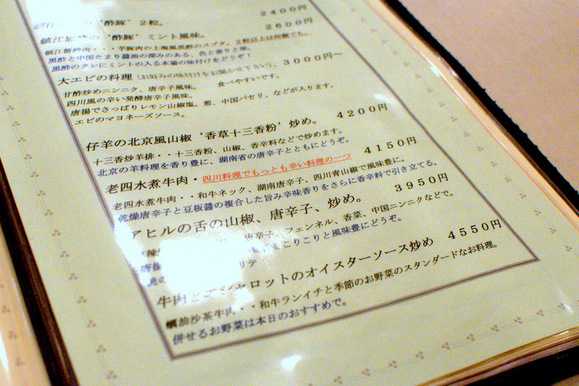 "酢豚" 2粒。 2400円
鎮江 "酢豚" ミント風味。 2600円
黒酢のタレにミントの入る本場の味付けをどうぞ!
大エビの料理(お好みの味付けをお聞かせ下さい) 3000円〜
甘酢炒めニンニク、唐辛子風味。 食べやすいです。
四川風の辛い発酵唐辛子風味。
唐揚でさっぱりレモン山椒塩。葱、中国パセリ、などが入ります。
エビのマヨネーズソース。
仔羊の北京風山椒"香草十三香粉"炒め。 4200円
十三香炒羊排・・十三香粉、山椒、香辛料などで炒めます。
北京の羊料理を香り豊に、湖南省の唐辛子とともにどうぞ。
老四水煮牛肉・四川料理でもっとも辛い料理の一つ 4150円
老四水煮牛肉・・和牛ネック、湖南唐辛子、四川青山椒で風味豊に。
乾燥唐辛子と豆板醤の複合した旨み辛味香りをさらに香辛料で引き立てる。
アヒルの舌の山椒、唐辛子、炒め。 3950円
辛子、フェンネル、香菜、中国ニンニクなどで。
こりこりと風味豊にどうぞ。
牛肉と ャロットのオイスターソース炒め 4550円
油沙茶牛肉・・和牛ランイチと季節のお野菜のスタンダードなお料理。
併せるお野菜は本日のおすすめで。